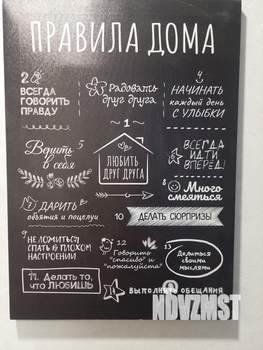 ПРАВИЛА ДОМА
2
ВСЕГДА
ГОВОРИТЬ
ПРАВДУ
Радовать
друг друга
4
НАЧИНАТЬ
каждый день
С УЛЫБКИ
1
ЛЮБИТЬ
ДРУГ ДРУГА
Верить 5
в себя
ВСЕГДА
ИДТИ
ВПЕРЕД!
7 ДАРИТЬ
объятия и поцелуи
8 Много
смеяться
10 ДЕЛАТЬ СЮРПРИЗЫ
9 НЕ ЛОЖИТЬСЯ
СПАТЬ В ПЛОХОМ
НАСТРОЕНИИ
12
Говорить
"спасибо" и
"пожалуйста"
13
Делиться
своими
мыслями
11. Делать то,
что ЛЮБИШЬ
ВЫПОЛНЯТЬ ОБЕЩАНИЯ
NDVZMST